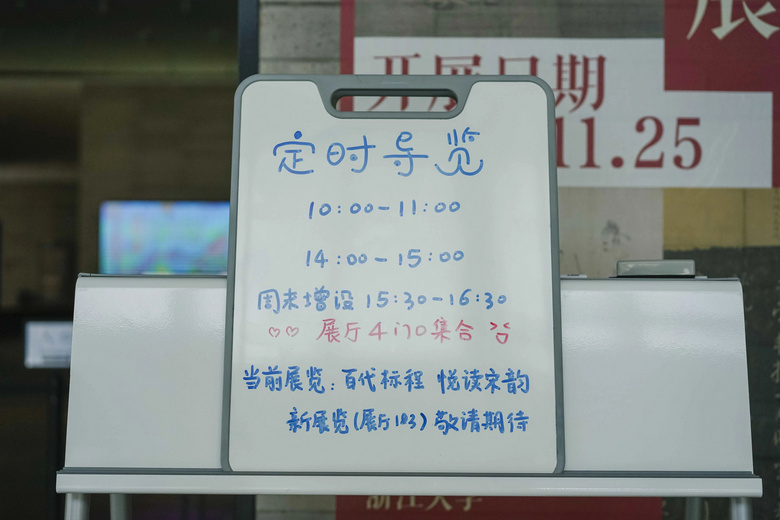 展
开展日期
11.25
定时导览
10:00-11:00
14:00-15:00
周末增设 15:30-16:30
♡♡ 展厅4门口集合
当前展览:百代标程 悦读宋韵
新展览(展厅103)敬请期待
浙江大学